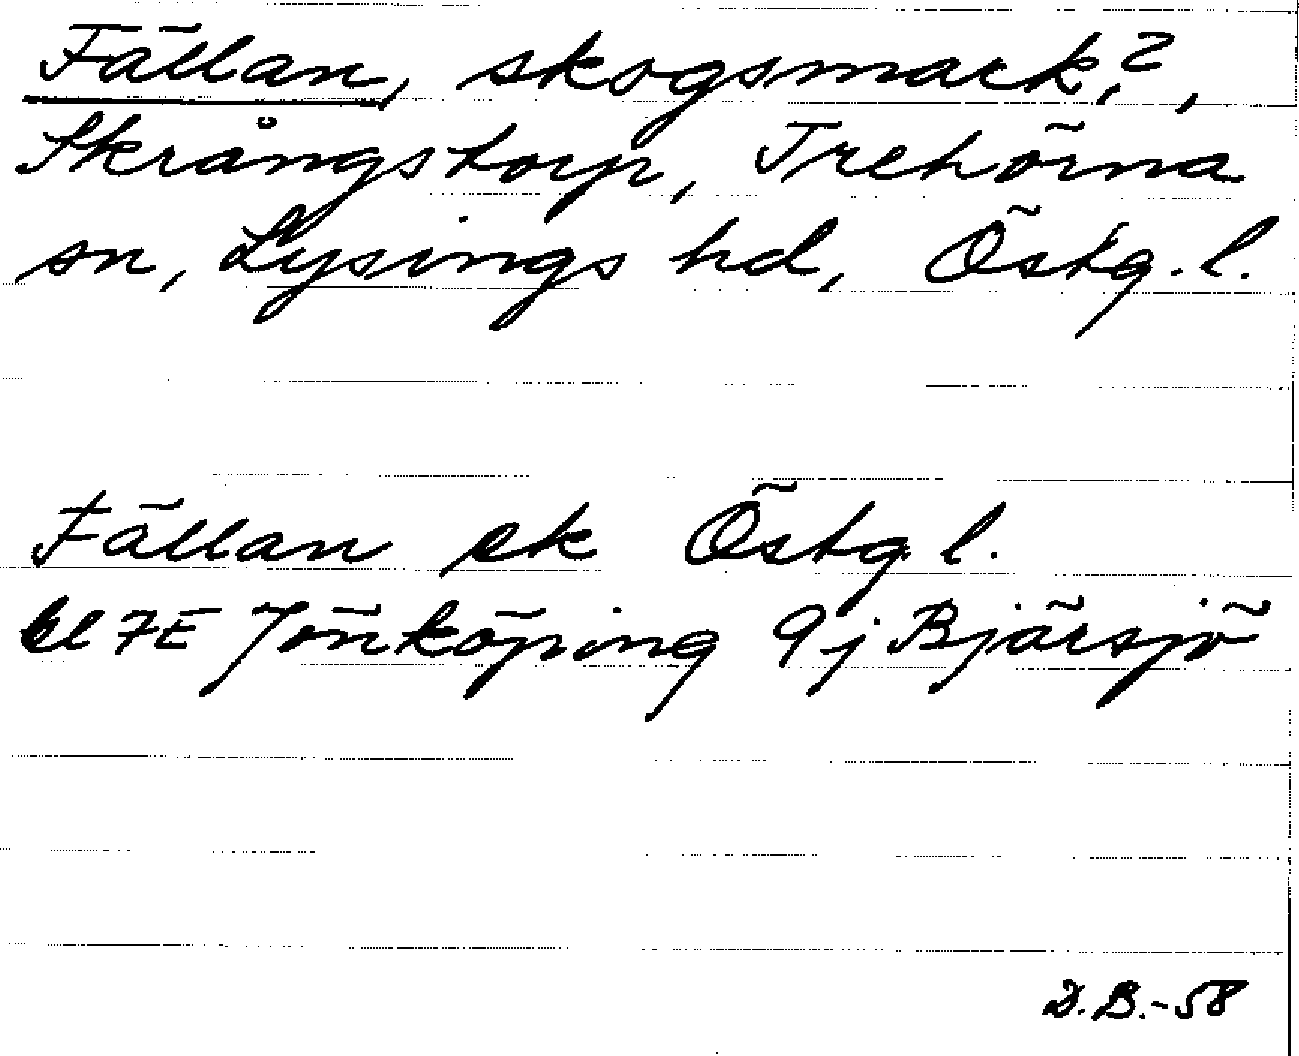 Fällan, skogsmark?,
Skrångstorp, Trehörna
sn, Lysings hd, Östg. l.

Fällan ek Östg l.
bl 7E Jönköping 9j Bjärsjö

D.B.-58